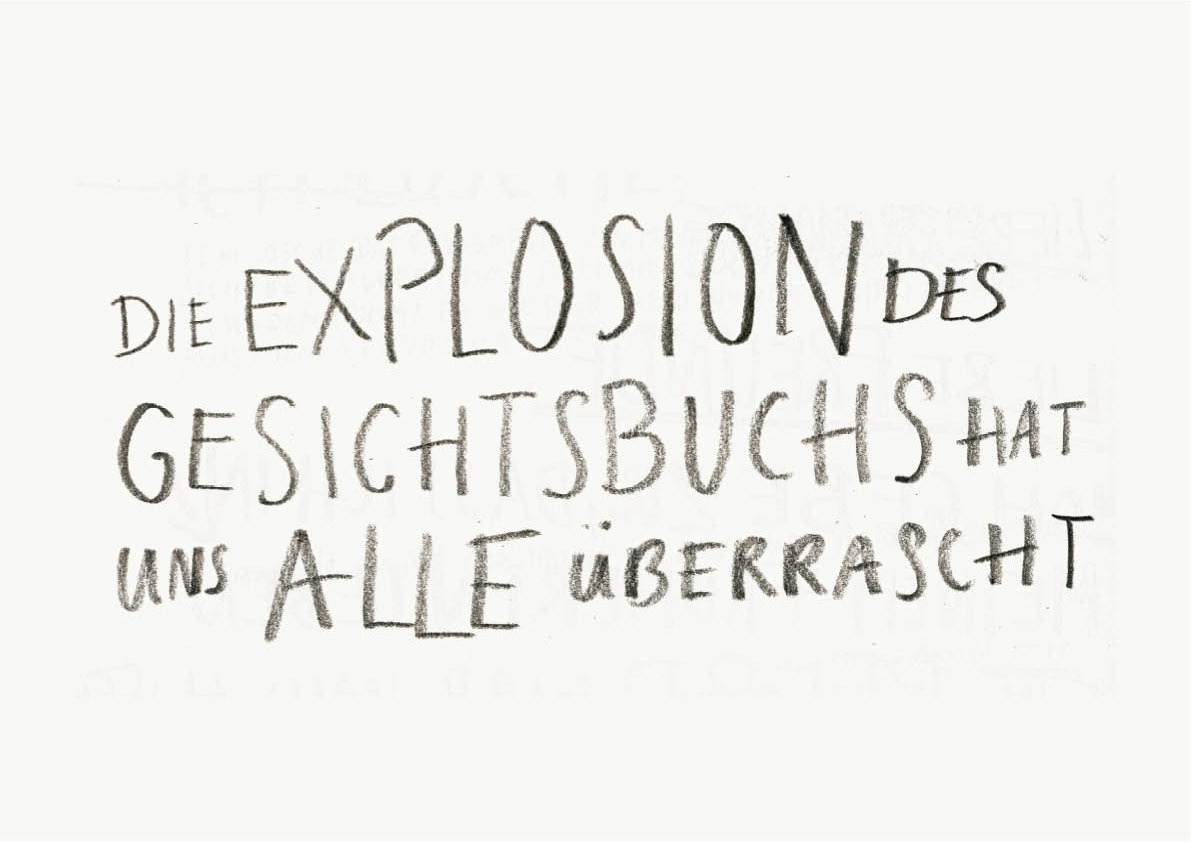 DIE EXPLOSION DES
GESICHTSBUCHS HAT
UNS ALLE ÜBERRASCHT